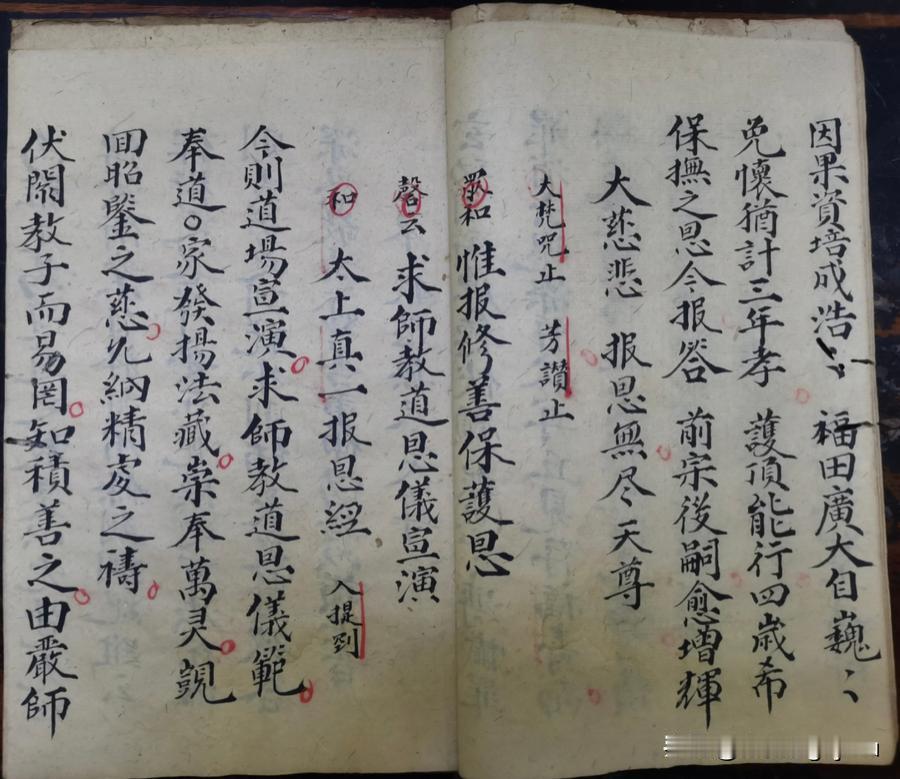 因果資培成浩〻 福田廣大自巍〻
免懷猶計三年孝 護頂能行四歲希
保撫之恩令报答 前宗後嗣愈增輝
大慈悲 报恩無尽天尊
大梵咒止 芳讚止
眾和 惟报修善保護恩
磬云 求師教道恩儀宣演
和 太上真一报恩經 入提到
今則道場宣演求師教道恩儀範
奉道○家發揚法藏崇奉萬灵覬
回昭鑒之慈允納精虔之禱
伏聞教子而易罔知積善之由嚴師